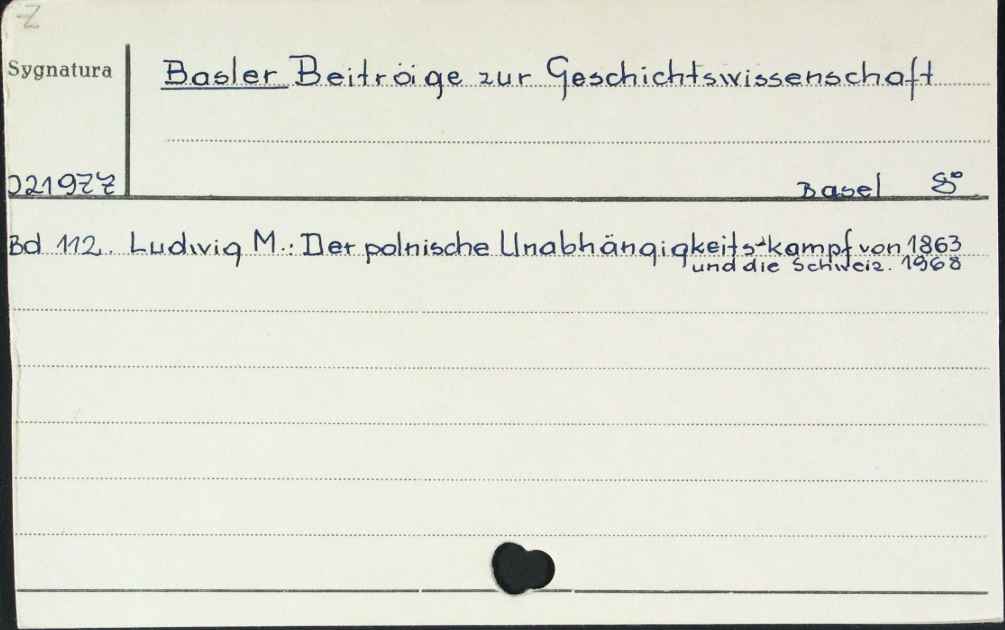 Z
Sygnatura
Basler Beiträige zur Geschichtswissenschaft
021977
Basel 8°
Bd 112. Ludwig M.: Der polnische Unabhängigkeits-kampf von 1863
und die Schweiz. 1968